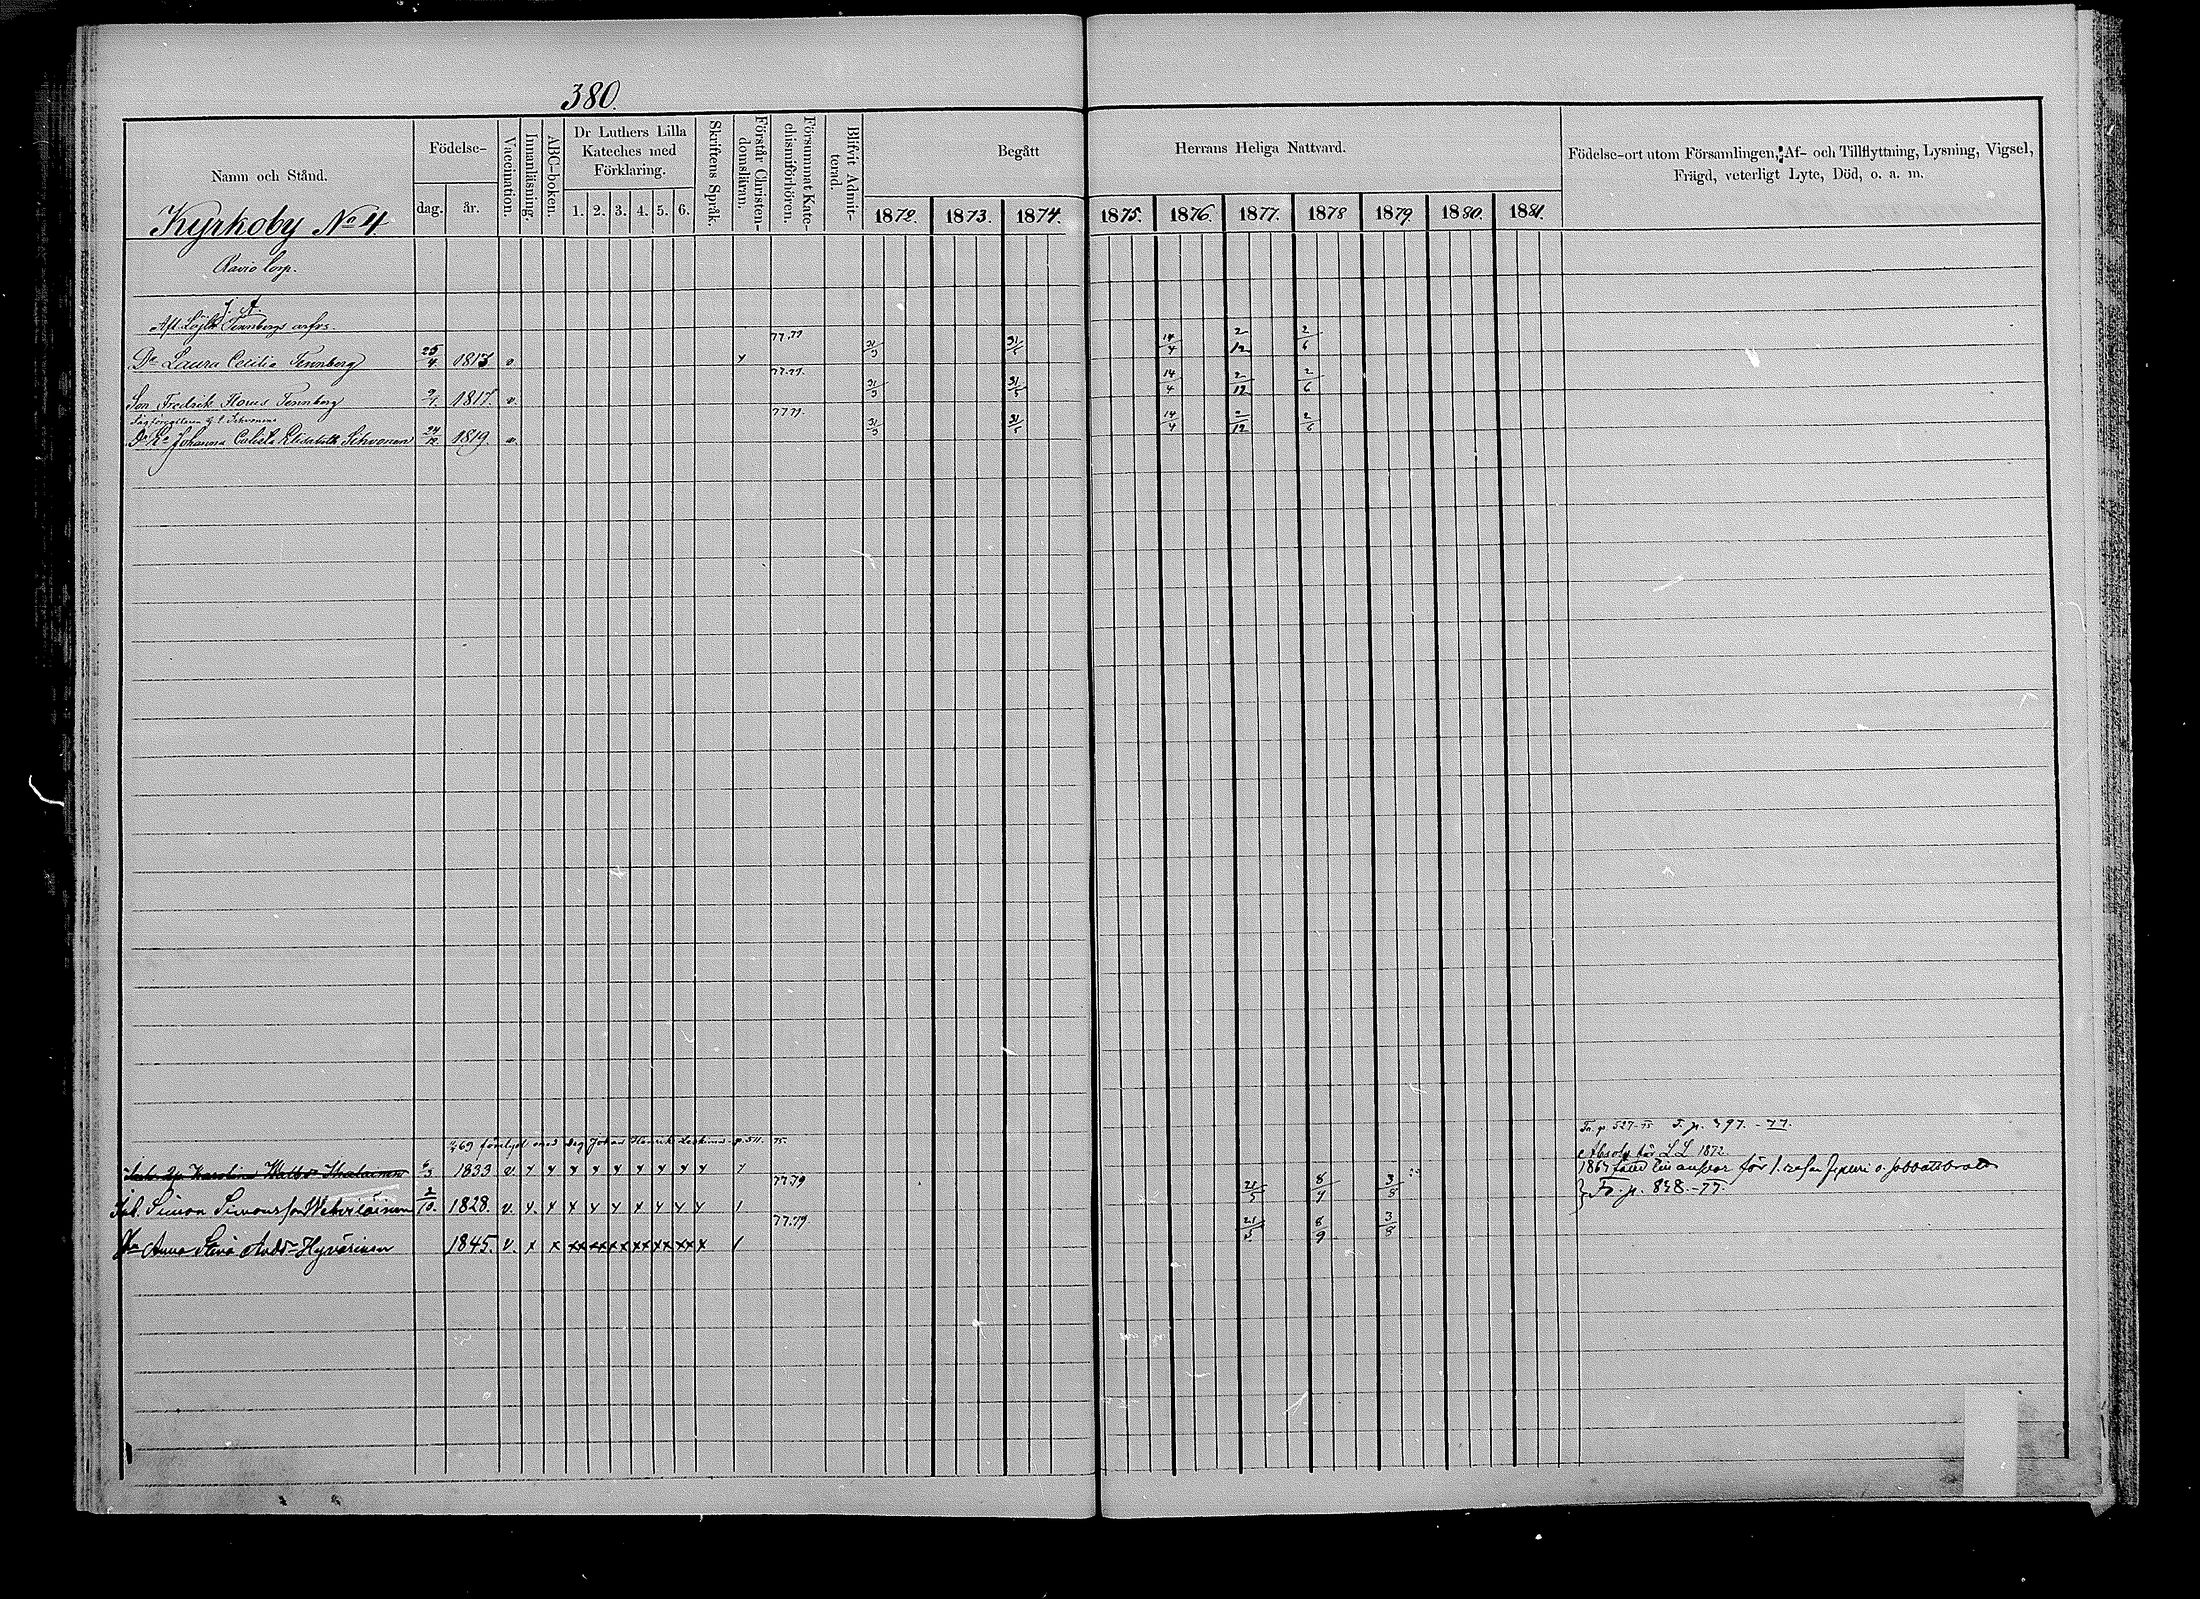 380.
Namn och Stånd.
Födelse-
dag. år.
Vaccination.
Innanläsning.
ABC-boken.
Dr Luthers Lilla
Kateches med
Förklaring.
1. 2. 3. 4. 5. 6.
Skriftens Språk.
Förstår Christen-
domsläran.
Försummat Kate-
chismiförhören.
Blifvit Admit-
terad.
Begått Herrans Heliga Nattvard.
1872. 1873. 1874. 1875. 1876. 1877. 1878 1879. 1880. 1881.
Födelse-ort utom Församlingen, Af- och Tillflyttning, Lysning, Vigsel,
Frägd, veterligt Lyte, Död, o. a. m.
Kyrkoby No 4
Ravio Corp.
Afl. Löjtn. Tennbergs arfvs.
77.79
Dr Laura Cecilia Tennberg 25/4 1813 v. 31/3 31/5 14/4 2/12 2/6
77.79.
Son Fredrik Florus Tennberg 9/1. 1817. v. 31/3 31/5 14/4 2/12 2/6
77.79
Johanna Calista Elisabeth Sihvonen 24/12 1819 v. 31/3 31/5 14/4 2/12 2/6
69 förelyst med drg Johan Henrik p. 511. 75.
Fr. p. 527-75 F. p. 397. -77.
Absolv. för L L 1872
Karolina 6/3 1833 v. x x x x x x x x x
1867
77.79
Simon Simonsson 2/10. 1828. v. x x x x x x x x x 21/5 8/9 3/8
Fr. p. 838. -77.
77.79
Anna Stina Andsr Hyvärinen 1845. v. x x xx xx xx xx xx xx x 21/5 8/9 3/8